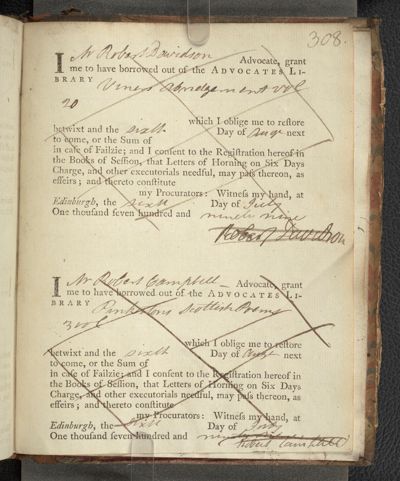 308.
I Mr Robert Davidson Advocate, grant
me to have borrowed out of the ADVOCATES LI-
BRARY Viners Abridgement vol
20
which I oblige me to reſtore
betwixt and the sixth Day of Augt next
to come, or the Sum of
in caſe of Failzie; and I conſent to the Regiſtration hereof in
the Books of Seſſion, that Letters of Horning on Six Days
Charge, and other executorials needful, may paſs thereon, as
effeirs; and thereto conſtitute
my Procurators: Witneſs my hand, at
Edinburgh, the sixth Day of July
One thouſand ſeven hundred and ninety nine
Robert Davidson
I Mr Robert Campbell Advocate, grant
me to have borrowed out of the ADVOCATES LI-
BRARY Pinkertons Scottish Poems
3 vol
which I oblige me to reſtore
betwixt and the sixth Day of Augt next
to come, or the Sum of
in caſe of Failzie; and I conſent to the Regiſtration hereof in
the Books of Seſſion, that Letters of Horning on Six Days
Charge, and other executorials needful, may paſs thereon, as
effeirs; and thereto conſtitute
my Procurators: Witneſs my hand, at
Edinburgh, the sixth Day of July
One thouſand ſeven hundred and ninety nine
Robert Campbell